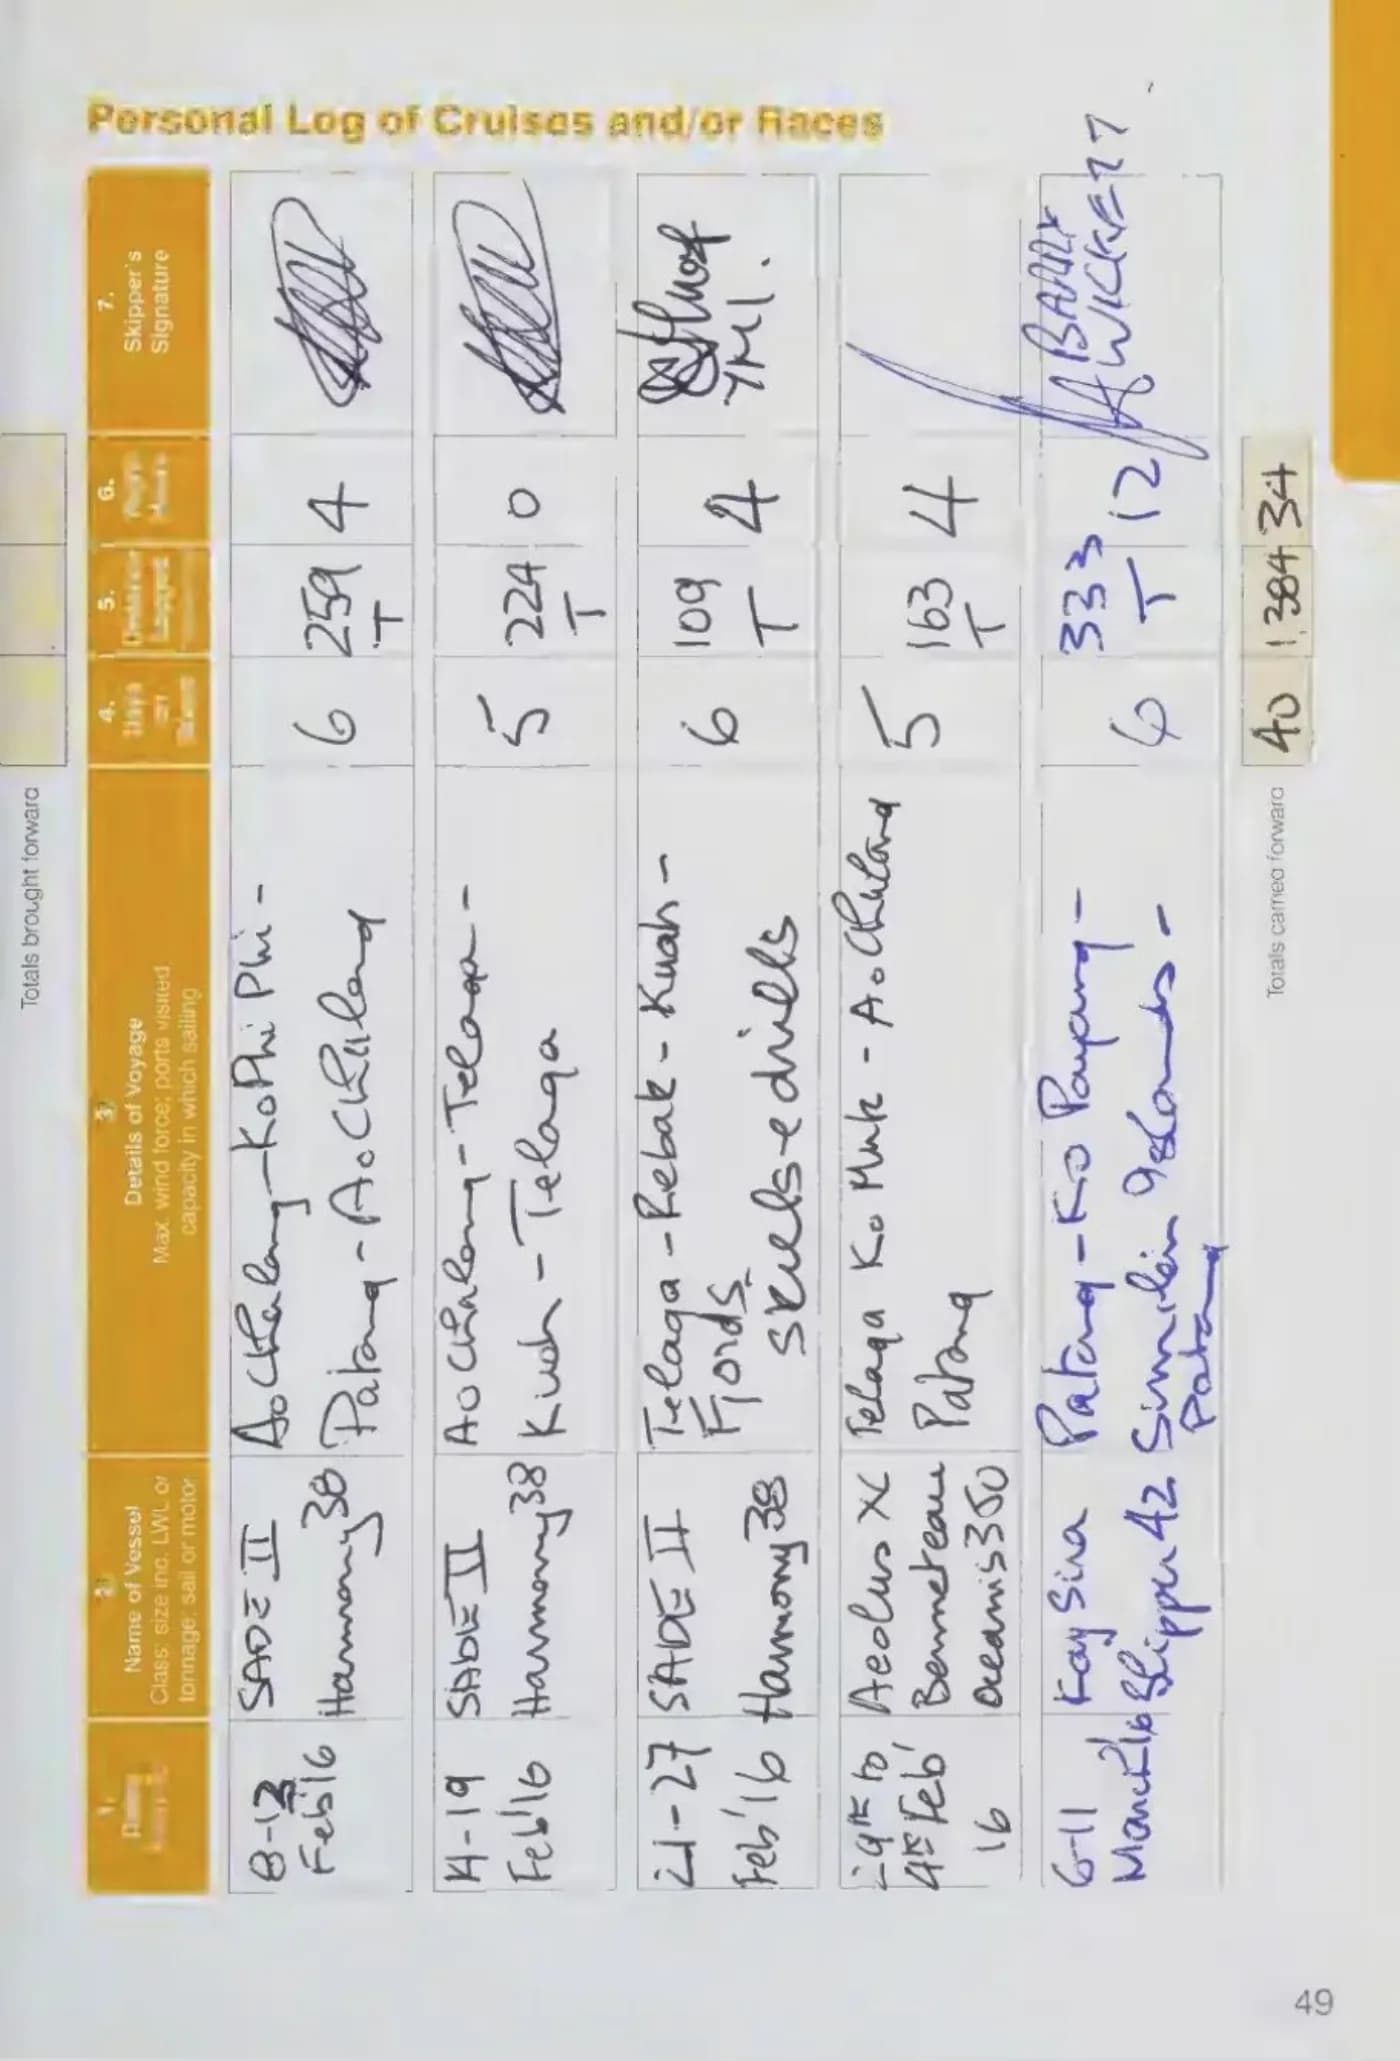 Personal Log of Cruises and/or Races
Totals brought forward
1.
2.
Name of Vessel
Class: size inc. LWL or
tonnage: sail or motor
3.
Details of Voyage
Max. wind force; ports visited
capacity in which sailing
4.
Days
on
Board
5.
Distance
Logged
6.
Night
Hours
7.
Skipper's
Signature
8-13
Feb'16
SADE II
Harmony 38
Ao Chalong - Ko Phi Phi -
Patong - Ao Chalong
6
259
T
4
14-19
Feb'16
SADE II
Harmony 38
Ao Chalong - Telaga -
Kuah - Telaga
5
224
T
0
21-27
Feb'16
SADE II
Harmony 38
Telaga - Rebak - Kuah -
Fjords
skills + drills
6
109
T
4
YM1.
to
Feb'
16
Aeolus X
Benneteau
Oceanis 350
Telaga Ko Muk - Ao Chalong
Patong
5
163
T
4
6-11
March'16
Kay Sira
Shipper 42
Patong - Ko Payang -
Similan Islands -
Patong
6
333
T
12
BARRY
Totals carried forward
40
1,384
34
49